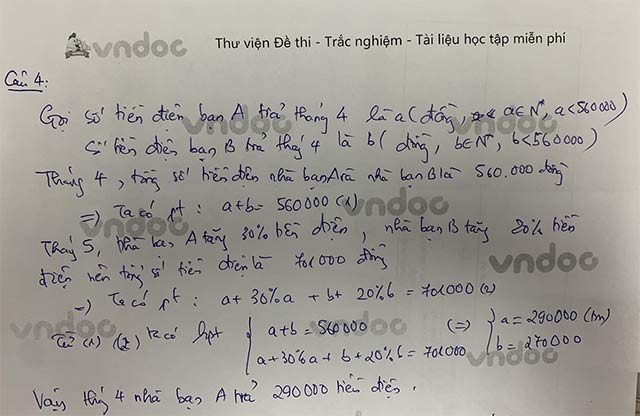 vndoc
Thư viện Đề thi - Trắc nghiệm - Tài liệu học tập miễn phí
Câu 4:
Gọi số tiền điện bạn A trả tháng 4 là a (đồng, a∈N*, a<560000)
Số tiền điện bạn B trả tháng 4 là b (đồng, b∈N*, b<560000)
Tháng 4, tổng số tiền điện nhà bạn A và nhà bạn B là 560.000 đồng
=) Ta có pt: a+b= 560000 (1)
Tháng 5, nhà bạn A tăng 30% tiền điện, nhà bạn B tăng 20% tiền
điện nên tổng số tiền điện là 701000 đồng
=) Ta có pt: a+ 30%a + b+ 20%b = 701000 (2)
Từ (1) (2) ta có hpt { a+b = 560000 (=) { a = 290000 (tm)
a+30%a + b+20%b = 701000 b = 270000
Vậy tháng 4 nhà bạn A trả 290000 tiền điện.